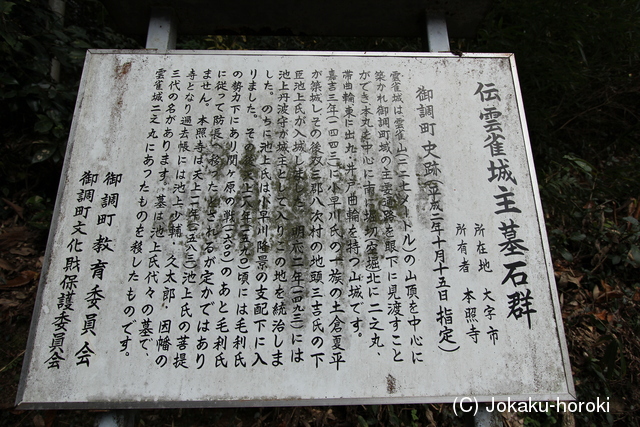 伝雲雀城主墓石群
所在地 大字市
所有者 本照寺
御調町史跡(平成二年十月十五日指定)
雲雀城は雲雀山(二一七メートル)の山頂を中心に
築かれ御調町域の主要通路を眼下に見渡すこと
ができ本丸を中心に南に堀切、空堀北に二之丸、
帯曲輪東に出丸、井戸曲輪を持つ山城です。
嘉吉三年(一四四三)に小早川氏の一族の土倉夏平
が築城しその後双三郡八次村の地頭三吉氏の下
臣池上氏が入城しました。明応二年(一四九三)には
池上丹波守が城主として入りこの地を統治しま
した。のちに池上氏は小早川隆景の支配下に入
りました。その後天正八年(一五八〇)頃には毛利氏
の勢力下にあり関ヶ原の戦(一六〇〇)のあと毛利氏
に従って防長へ移ったとされるが定かではあり
ません。本照寺は天正十一年(一五八三)池上氏の菩提
寺となり過去帳には池上少輔、久太郎、因幡の
三代の名があります。墓は池上氏代々の墓で、
雲雀城二之丸にあったものを移したものです。
御調町教育委員会
御調町文化財保護委員会
(C) Jokaku-horoki